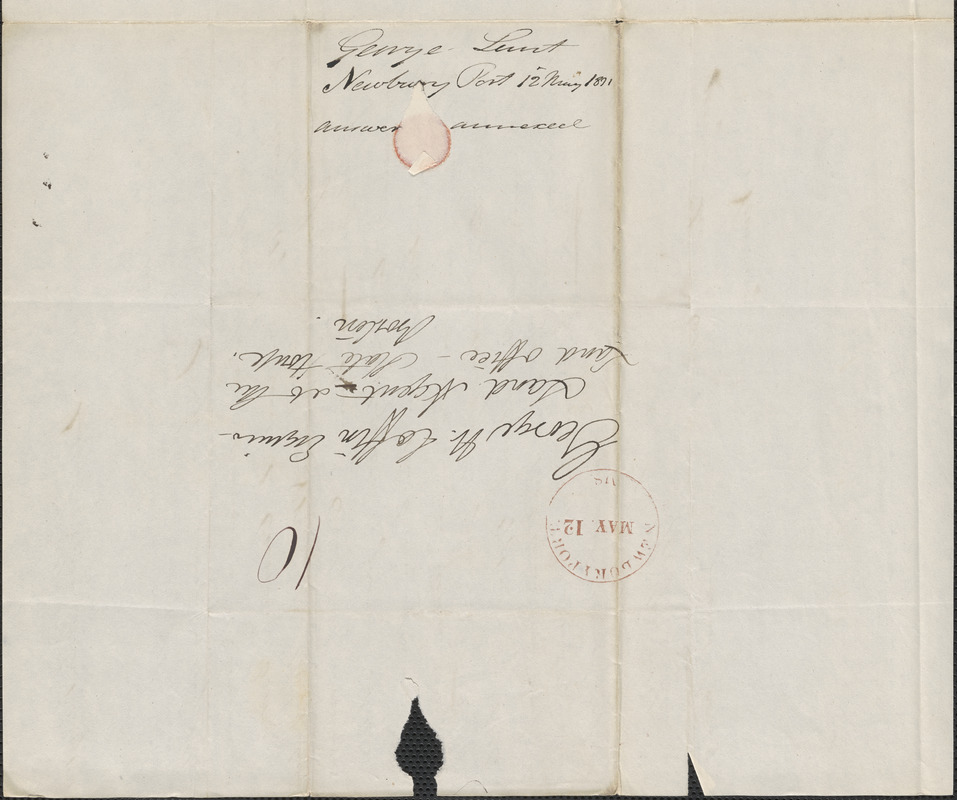 George Lunt
Newbury Port 12 May 1831
answer annexed
George W. Coffin Esquire
Land Agent - at the
Land office - State House.
Boston.
NEWBURYPORT
MAY 12
MS
10